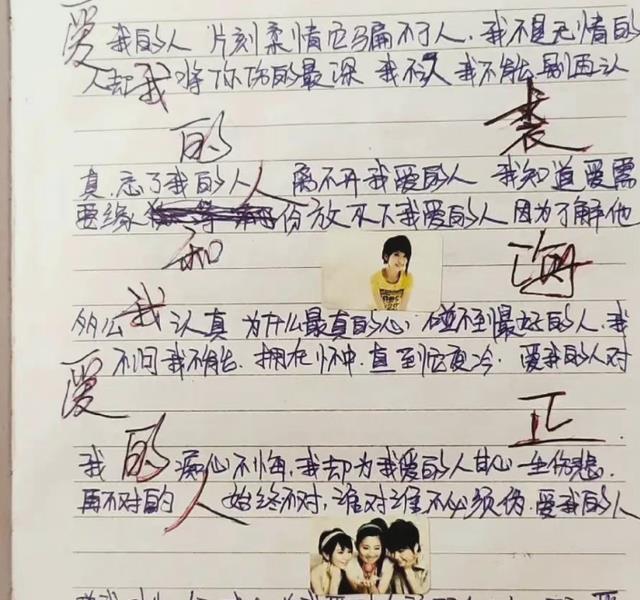 爱我的人 片刻柔情它骗不了人，我不是无情的
人却我将你伤的最深 我不 我不能别再认
的 裴
真，忘了我的人人 离不开我爱的人 我知道爱需
要缘份放不下我爱的人 因为了解他
和 诲
多么我认真 为什么最真的心，碰不到最好的人，我
爱不问我不能.拥在怀中.直到它变冷. 爱我的人对
正
我的痴心不悔，我却为我爱的人甘心一生伤悲.
再不对的人始终不对，谁对谁不必须伪.爱我的人